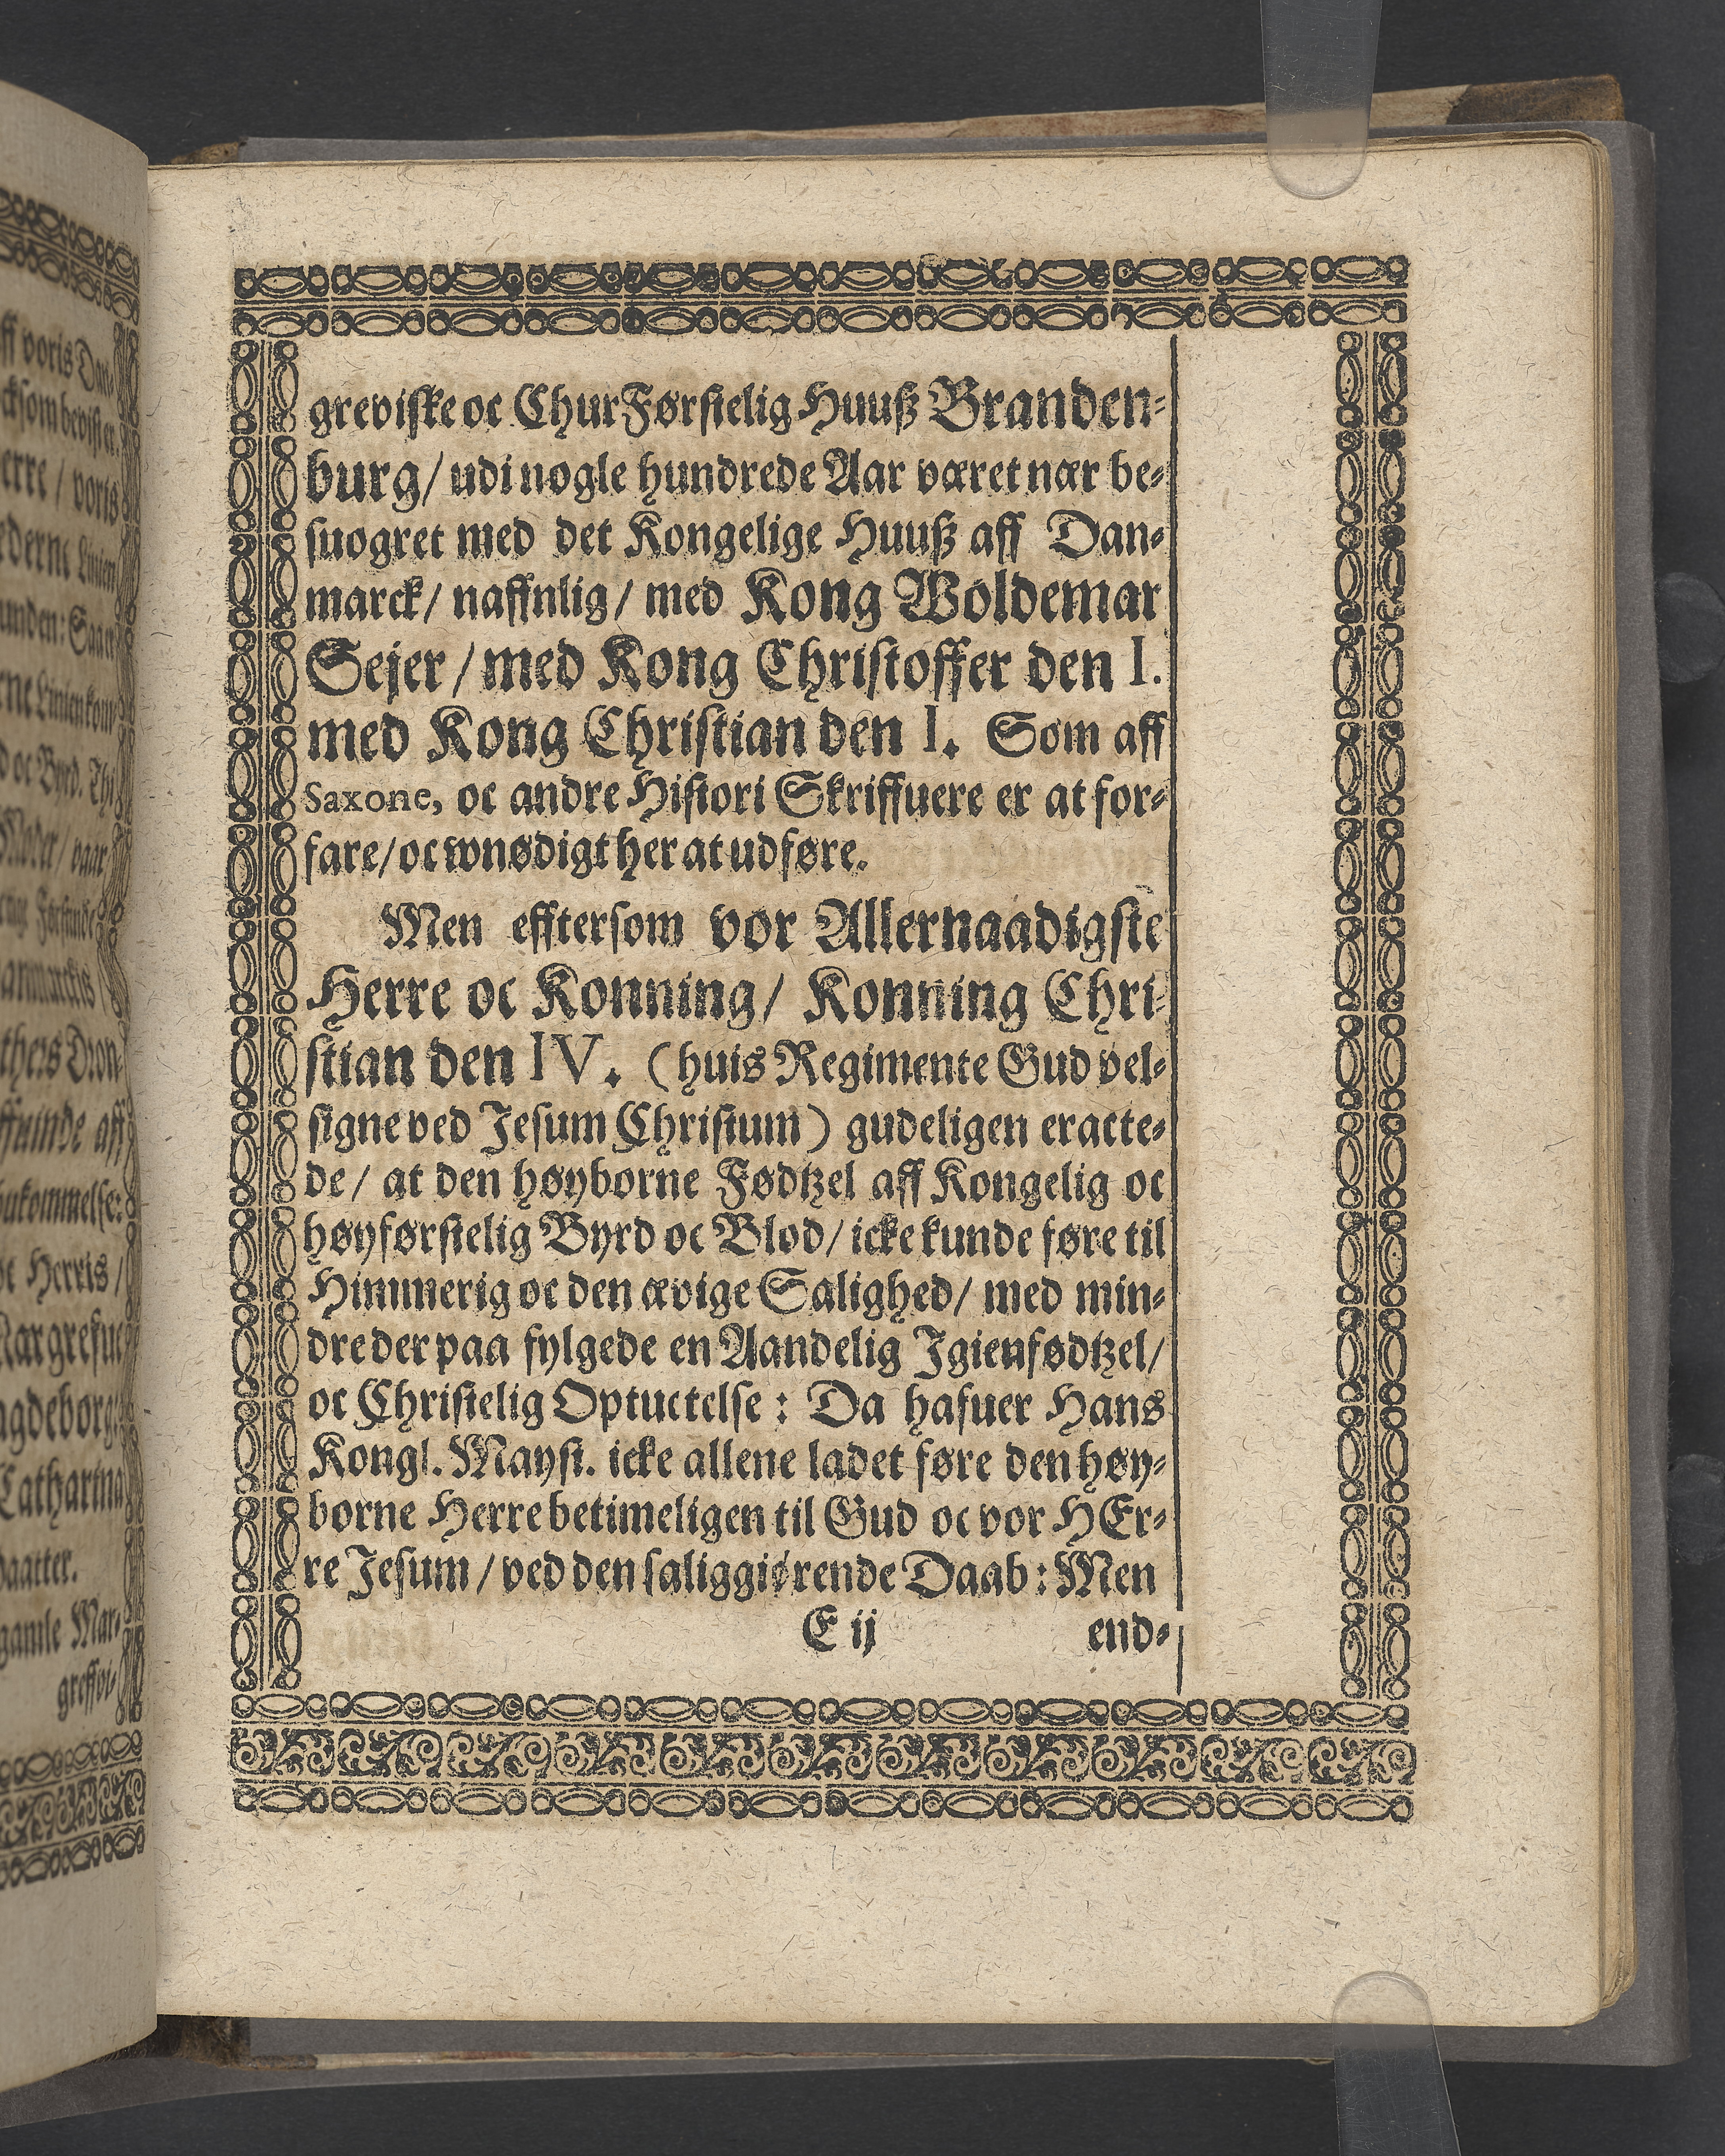 greviske oc ChurFørstelig Huuß Branden-
burg/ udi nogle hundrede Aar været nær be-
suogret med det Kongelige Huuß aff Dan-
marck/ naffnlig/ med Kong Woldemar
Sejer/ med Kong Christoffer den I.
med Kong Christian den I. Som aff
Saxone, oc andre Histori Skriffuere er at for-
fare/ oc wnødigt her at udføre.
Men efftersom vor Allernaadigste
Herre oc Konning/ Konning Chri-
stian den IV. (huis Regimente Gud vel-
signe ved Jesum Christum) gudeligen eracte-
de/ at den høyborne Fødtzel aff Kongelig oc
høyførstelig Byrd oc Blod/ icke kunde føre til
Himmerig oc den ævige Salighed/ med min-
dre der paa fylgede en Aandelig Igienfødtzel/
oc Christelig Optuctelse: Da hafuer Hans
Kongl. Mayst. icke allene ladet føre den høy-
borne Herre betimeligen til Gud oc vor HEr-
re Jesum/ ved den saliggiørende Daab: Men
E ij end-